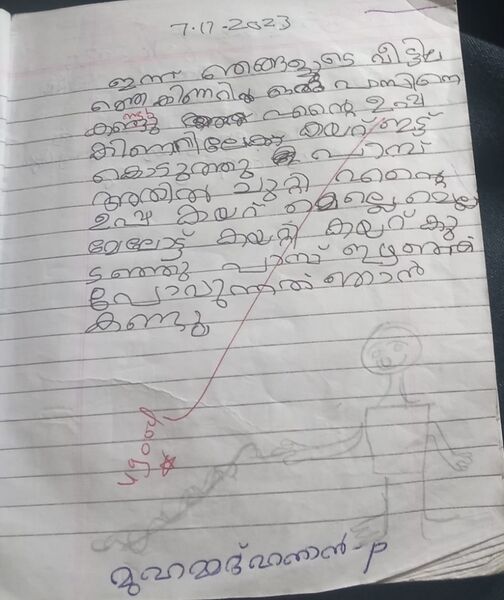 7-17-2023
ഇന്ന് ഞങ്ങളുടെ വീട്ടില
ത്തെ കിണറിൽ ഒരു പാമ്പിനെ
കണ്ടു എന്റെ ഉപ്പ
കിണറിലേക്ക് കയറ് ഇട്ട്
കൊടുത്തു പാമ്പ്
അതിൽ ചുറ്റി എന്റെ
ഉപ്പ കയറ് മെല്ലെ മെല്ലെ
മേലോട്ട് കയറ്റി കയറ് കു
ടഞ്ഞു പാമ്പ് ഇഴഞ്ഞ്
പോവുന്നത് ഞാൻ
കണ്ടു
vgood
മുഹമ്മദ് ഹനാൻ-P